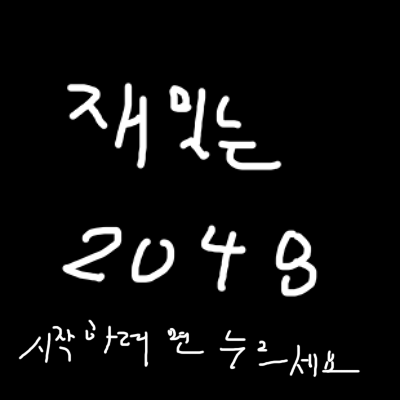 재밌는
2048
시작하려면 누르세요